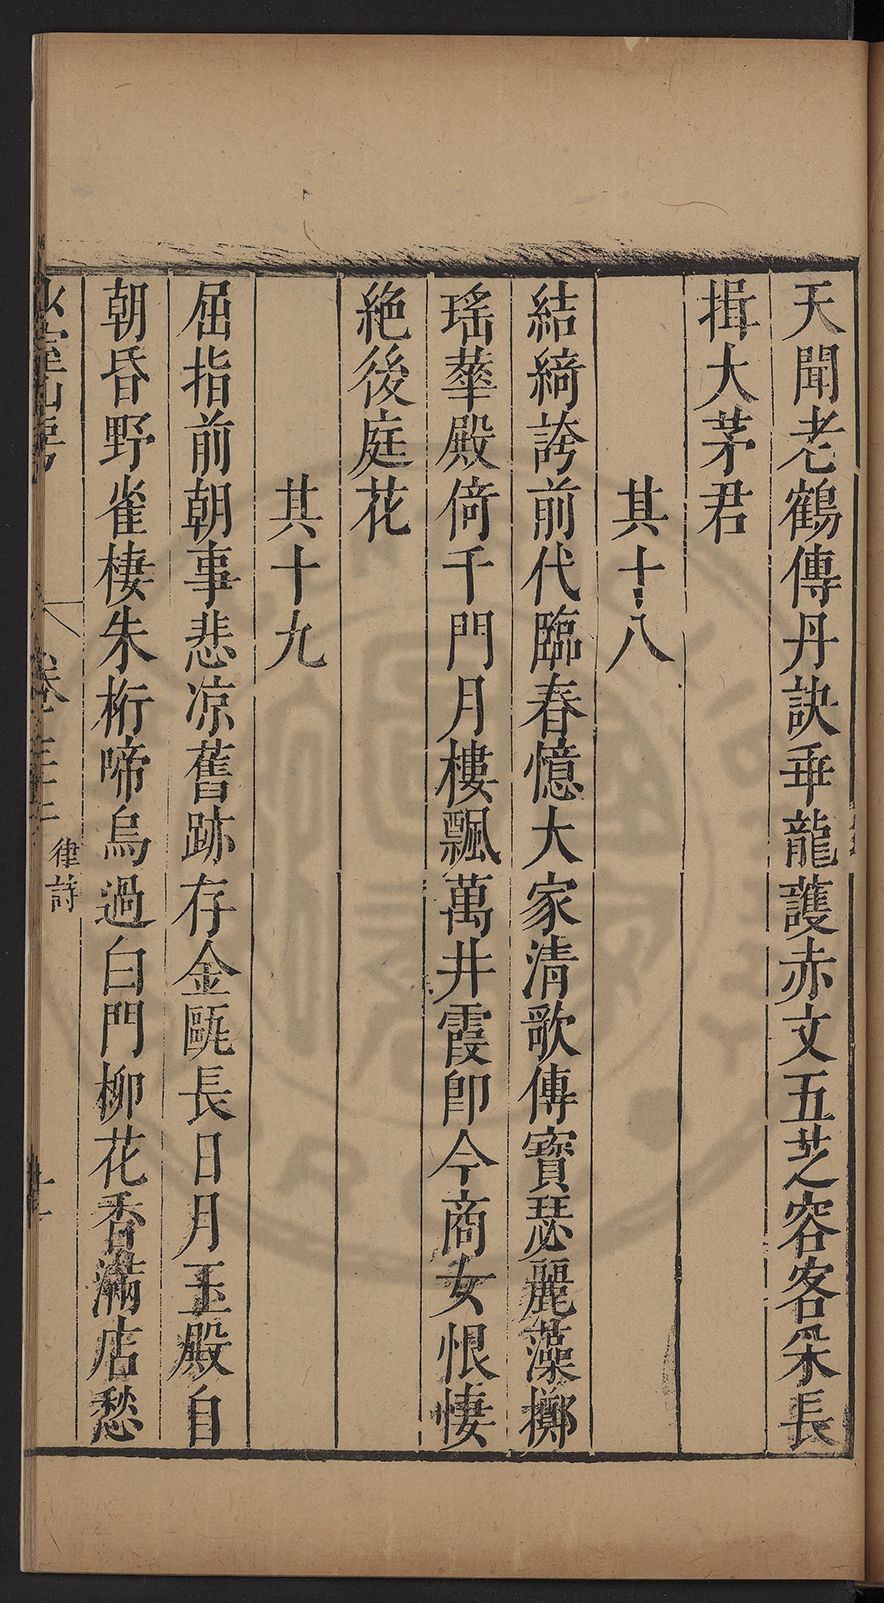 天聞老鶴傳丹訣垂龍護赤文五芝容客采長
揖大茅君
其十八
結綺誇前代臨春憶大家清歌傳寶瑟麗藻擲
瑤華殿倚千門月樓飄萬井霞卽今商女恨悽
絶後庭花
其十九
屈指前朝事悲凉舊跡存金甌長日月玉殿自
朝昏野雀棲朱桁啼烏過白門柳花香滿店愁
卷
律詩